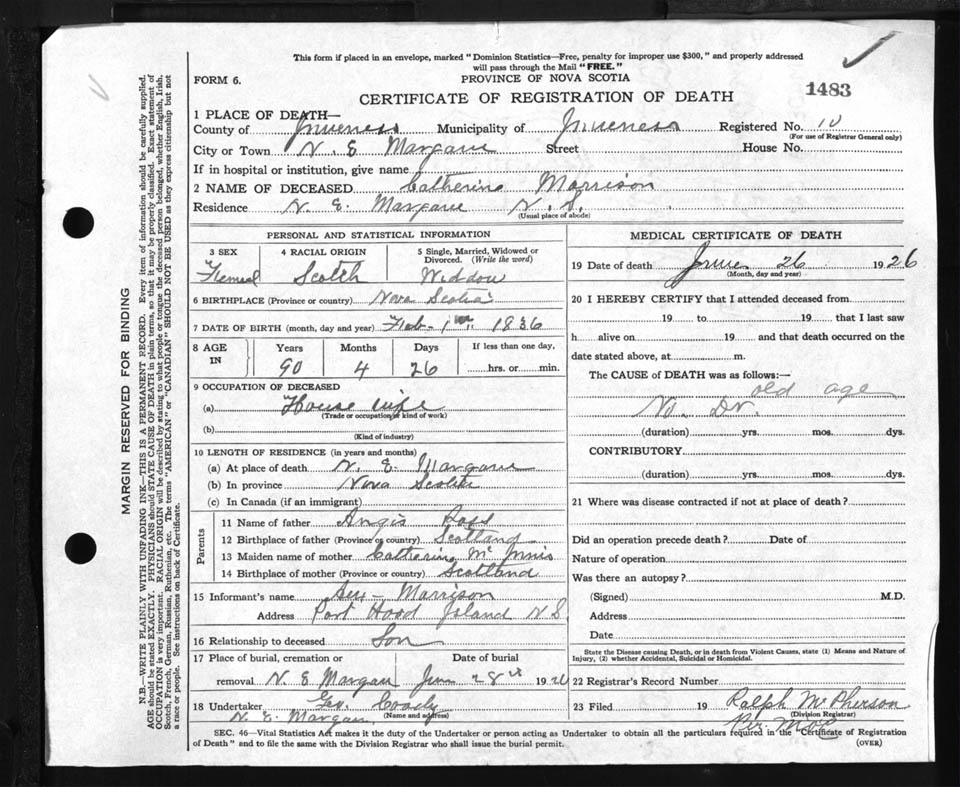 This form if placed in an envelope, marked "Dominion Statistics—Free, penalty for improper use $300," and properly addressed
will pass through the Mail "FREE."
FORM 6.
PROVINCE OF NOVA SCOTIA
1483
CERTIFICATE OF REGISTRATION OF DEATH
1 PLACE OF DEATH—
County of Inverness Municipality of Inverness Registered No. 10
(For use of Registrar General only)
City or Town N. E Margaree Street House No.
If in hospital or institution, give name
2 NAME OF DECEASED Catherine Morrison
Residence N. E. Margaree N. S.
(Usual place of abode)
PERSONAL AND STATISTICAL INFORMATION
3 SEX 4 RACIAL ORIGIN 5 Single, Married, Widowed or Divorced. (Write the word)
Femeal Scotch Widdow
6 BIRTHPLACE (Province or country) Nova Scotia
7 DATE OF BIRTH (month, day and year) Feb- 1 1836
8 AGE IN Years Months Days If less than one day,
90 4 26 hrs. or min.
9 OCCUPATION OF DECEASED
(a) House wife
(Trade or occupation or kind of work)
(b)
(Kind of industry)
10 LENGTH OF RESIDENCE (in years and months)
(a) At place of death N. E. Margaree
(b) In province Nova Scotia
(c) In Canada (if an immigrant)
Parents
11 Name of father Angis Ross
12 Birthplace of father (Province or country) Scotland
13 Maiden name of mother Catherine Mc Innis
14 Birthplace of mother (Province or country) Scotland
15 Informant's name Morrison
Address Port Hood Island N S
16 Relationship to deceased Son
17 Place of burial, cremation or Date of burial
removal N. E Margaree June 28 1926
18 Undertaker Coady
N. E. Margaree (Name and address)
MEDICAL CERTIFICATE OF DEATH
19 Date of death June 26 1926
(Month, day and year)
20 I HEREBY CERTIFY that I attended deceased from
19 to 19 that I last saw
h alive on 19 and that death occurred on the
date stated above, at m.
The CAUSE of DEATH was as follows:—
old age
No. Dr.
(duration) yrs. mos. dys.
CONTRIBUTORY
(duration) yrs. mos. dys.
21 Where was disease contracted if not at place of death?
Did an operation precede death? Date of
Nature of operation
Was there an autopsy?
(Signed) M.D.
Address
Date
State the Disease causing Death, or in death from Violent Causes, state (1) Means and Nature of
Injury, (2) whether Accidental, Suicidal or Homicidal.
22 Registrar's Record Number
23 Filed 19 Ralph McPherson
(Division Registrar)
SEC. 46—Vital Statistics Act makes it the duty of the Undertaker or person acting as Undertaker to obtain all the particulars required in the "Certificate of Registration
of Death" and to file the same with the Division Registrar who shall issue the burial permit.
(OVER)
MARGIN RESERVED FOR BINDING
N.B.—WRITE PLAINLY WITH UNFADING INK—THIS IS A PERMANENT RECORD. Every item of information should be carefully supplied.
AGE should be stated EXACTLY. PHYSICIANS should STATE CAUSE OF DEATH in plain terms, so that it may be properly classified. Exact statement of
OCCUPATION is very important. RACIAL ORIGIN will be described by stating to what people or tongue the deceased person belonged, whether English, Irish,
Scotch, French, German, Russian, Ruthenian, etc. The terms "AMERICAN" or "CANADIAN" SHOULD NOT BE USED as they express citizenship but not
a race or people. See instructions on back of Certificate.